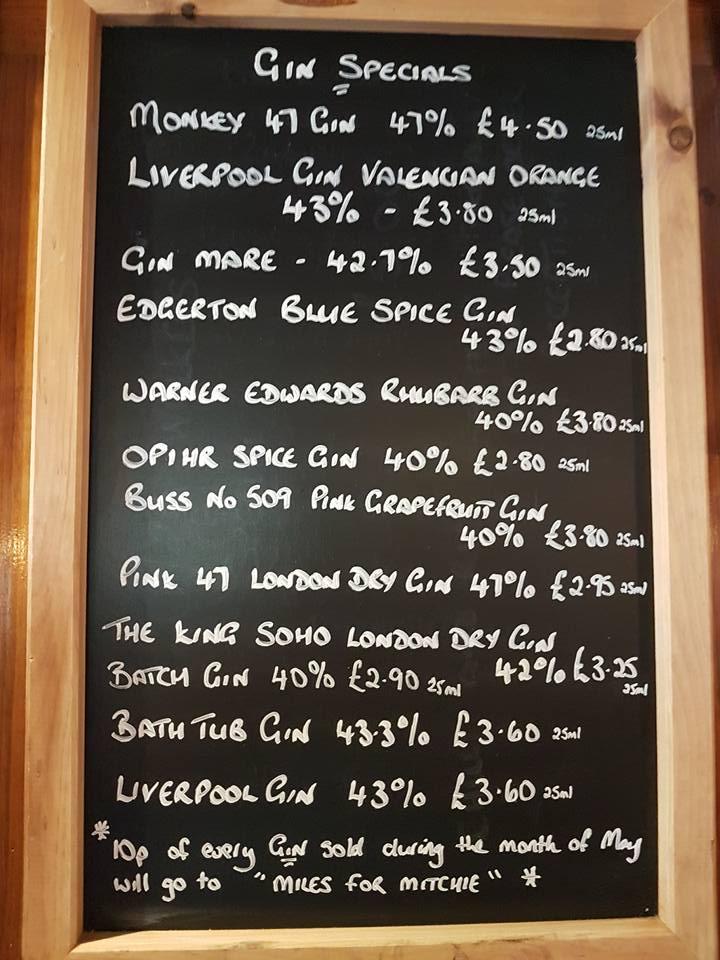 GIN SPECIALS
MONKEY 47 GIN 47% £4.50 25ml
LIVERPOOL GIN VALENCIAN ORANGE
43% - £3.80 25ml
GIN MARE - 42.7% £3.50 25ml
EDGERTON BLUE SPICE GIN
43% £2.80 25ml
WARNER EDWARDS RHUBARB GIN
40% £3.80 25ml
OPIHR SPICE GIN 40% £2.80 25ml
BLISS No 509 PINK GRAPEFRUIT GIN
40% £3.80 25ml
PINK 47 LONDON DRY GIN 47% £2.95 25ml
THE KING SOHO LONDON DRY GIN
42% £3.25 25ml
BATCH GIN 40% £2.90 25ml
BATH TUB GIN 43.3% £3.60 25ml
LIVERPOOL GIN 43% £3.60 25ml
* 10p of every GIN sold during the month of May
will go to "MILES FOR MITCHIE" *